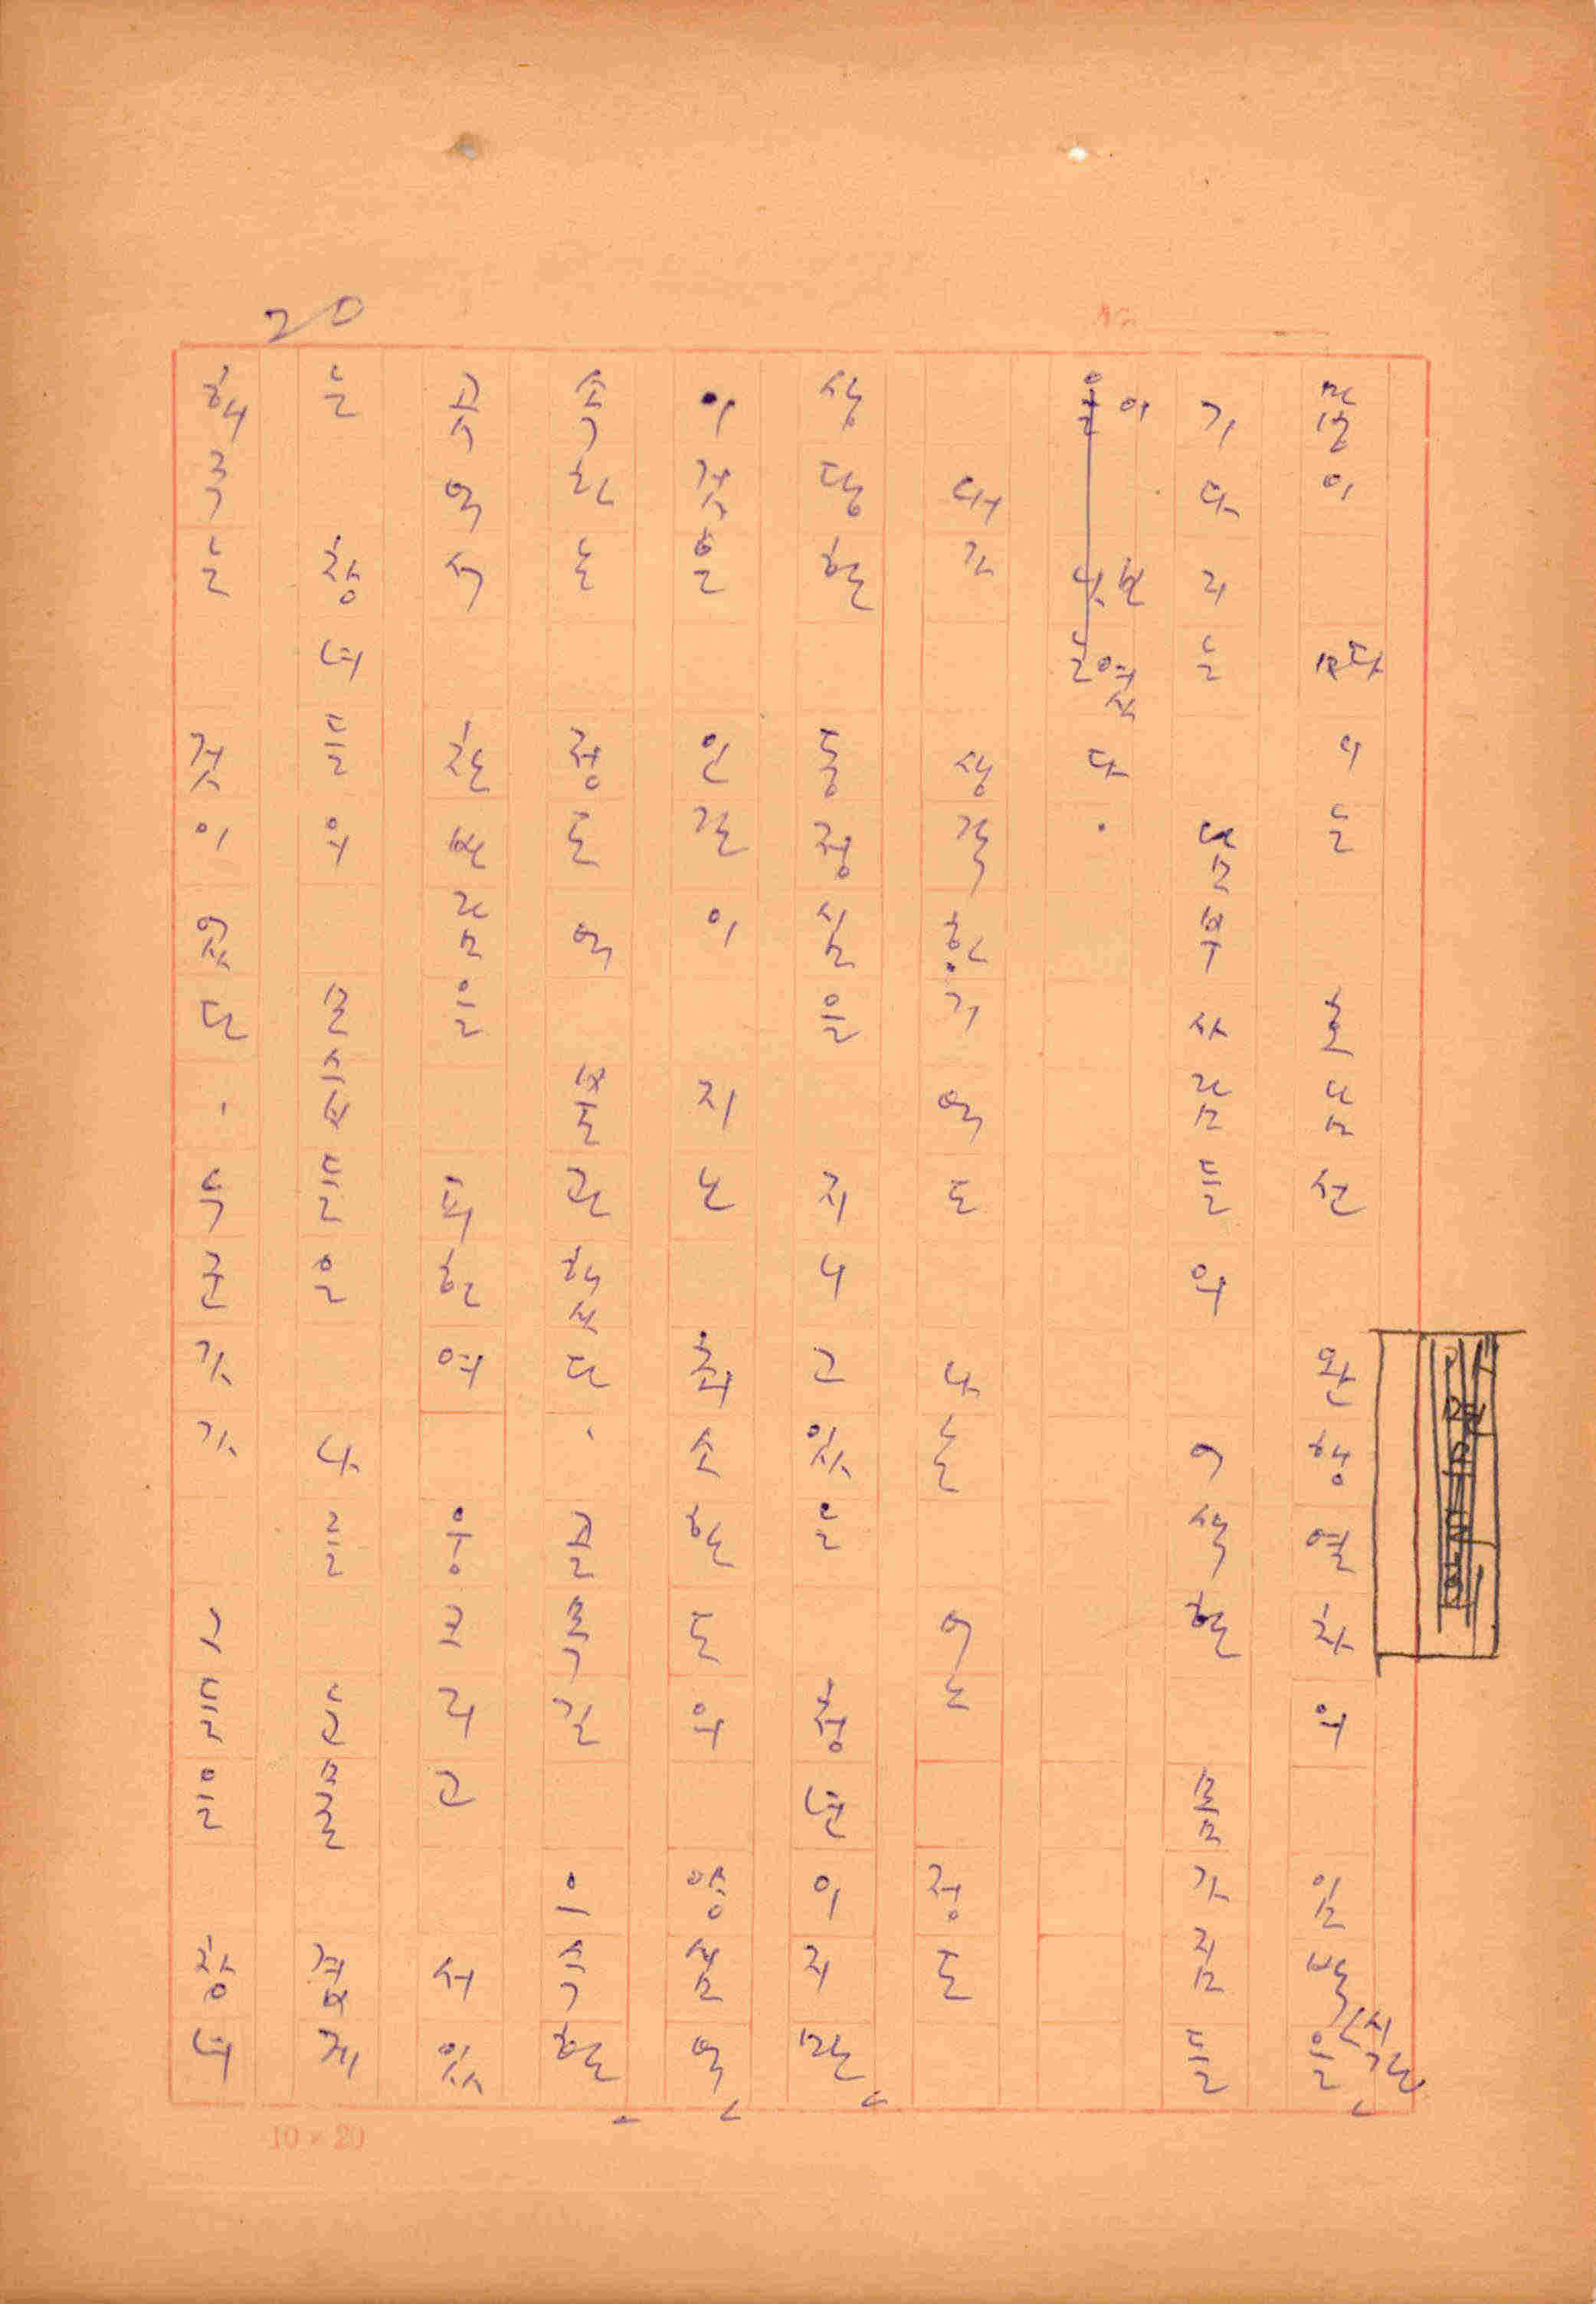 이는 호남선 완행열차의 일박을 시간
기다리는 남부사람들의 어색한 몸가짐들
이 보였다.
내가 생각하기에도 나는 어느 정도
상당한 동정심을 지니고 있는 청년이지만
이것은 인간이 지닌 최소한도의 양심에
속하는 정도에 불과했다. 골목길 으슥한
구석에 찬바람을 피하여 웅크리고 서있
는 창녀들의 모습들은 나를 눈물겹게
해주는 것이었다. 누군가가 그들을 창녀
20
10×20